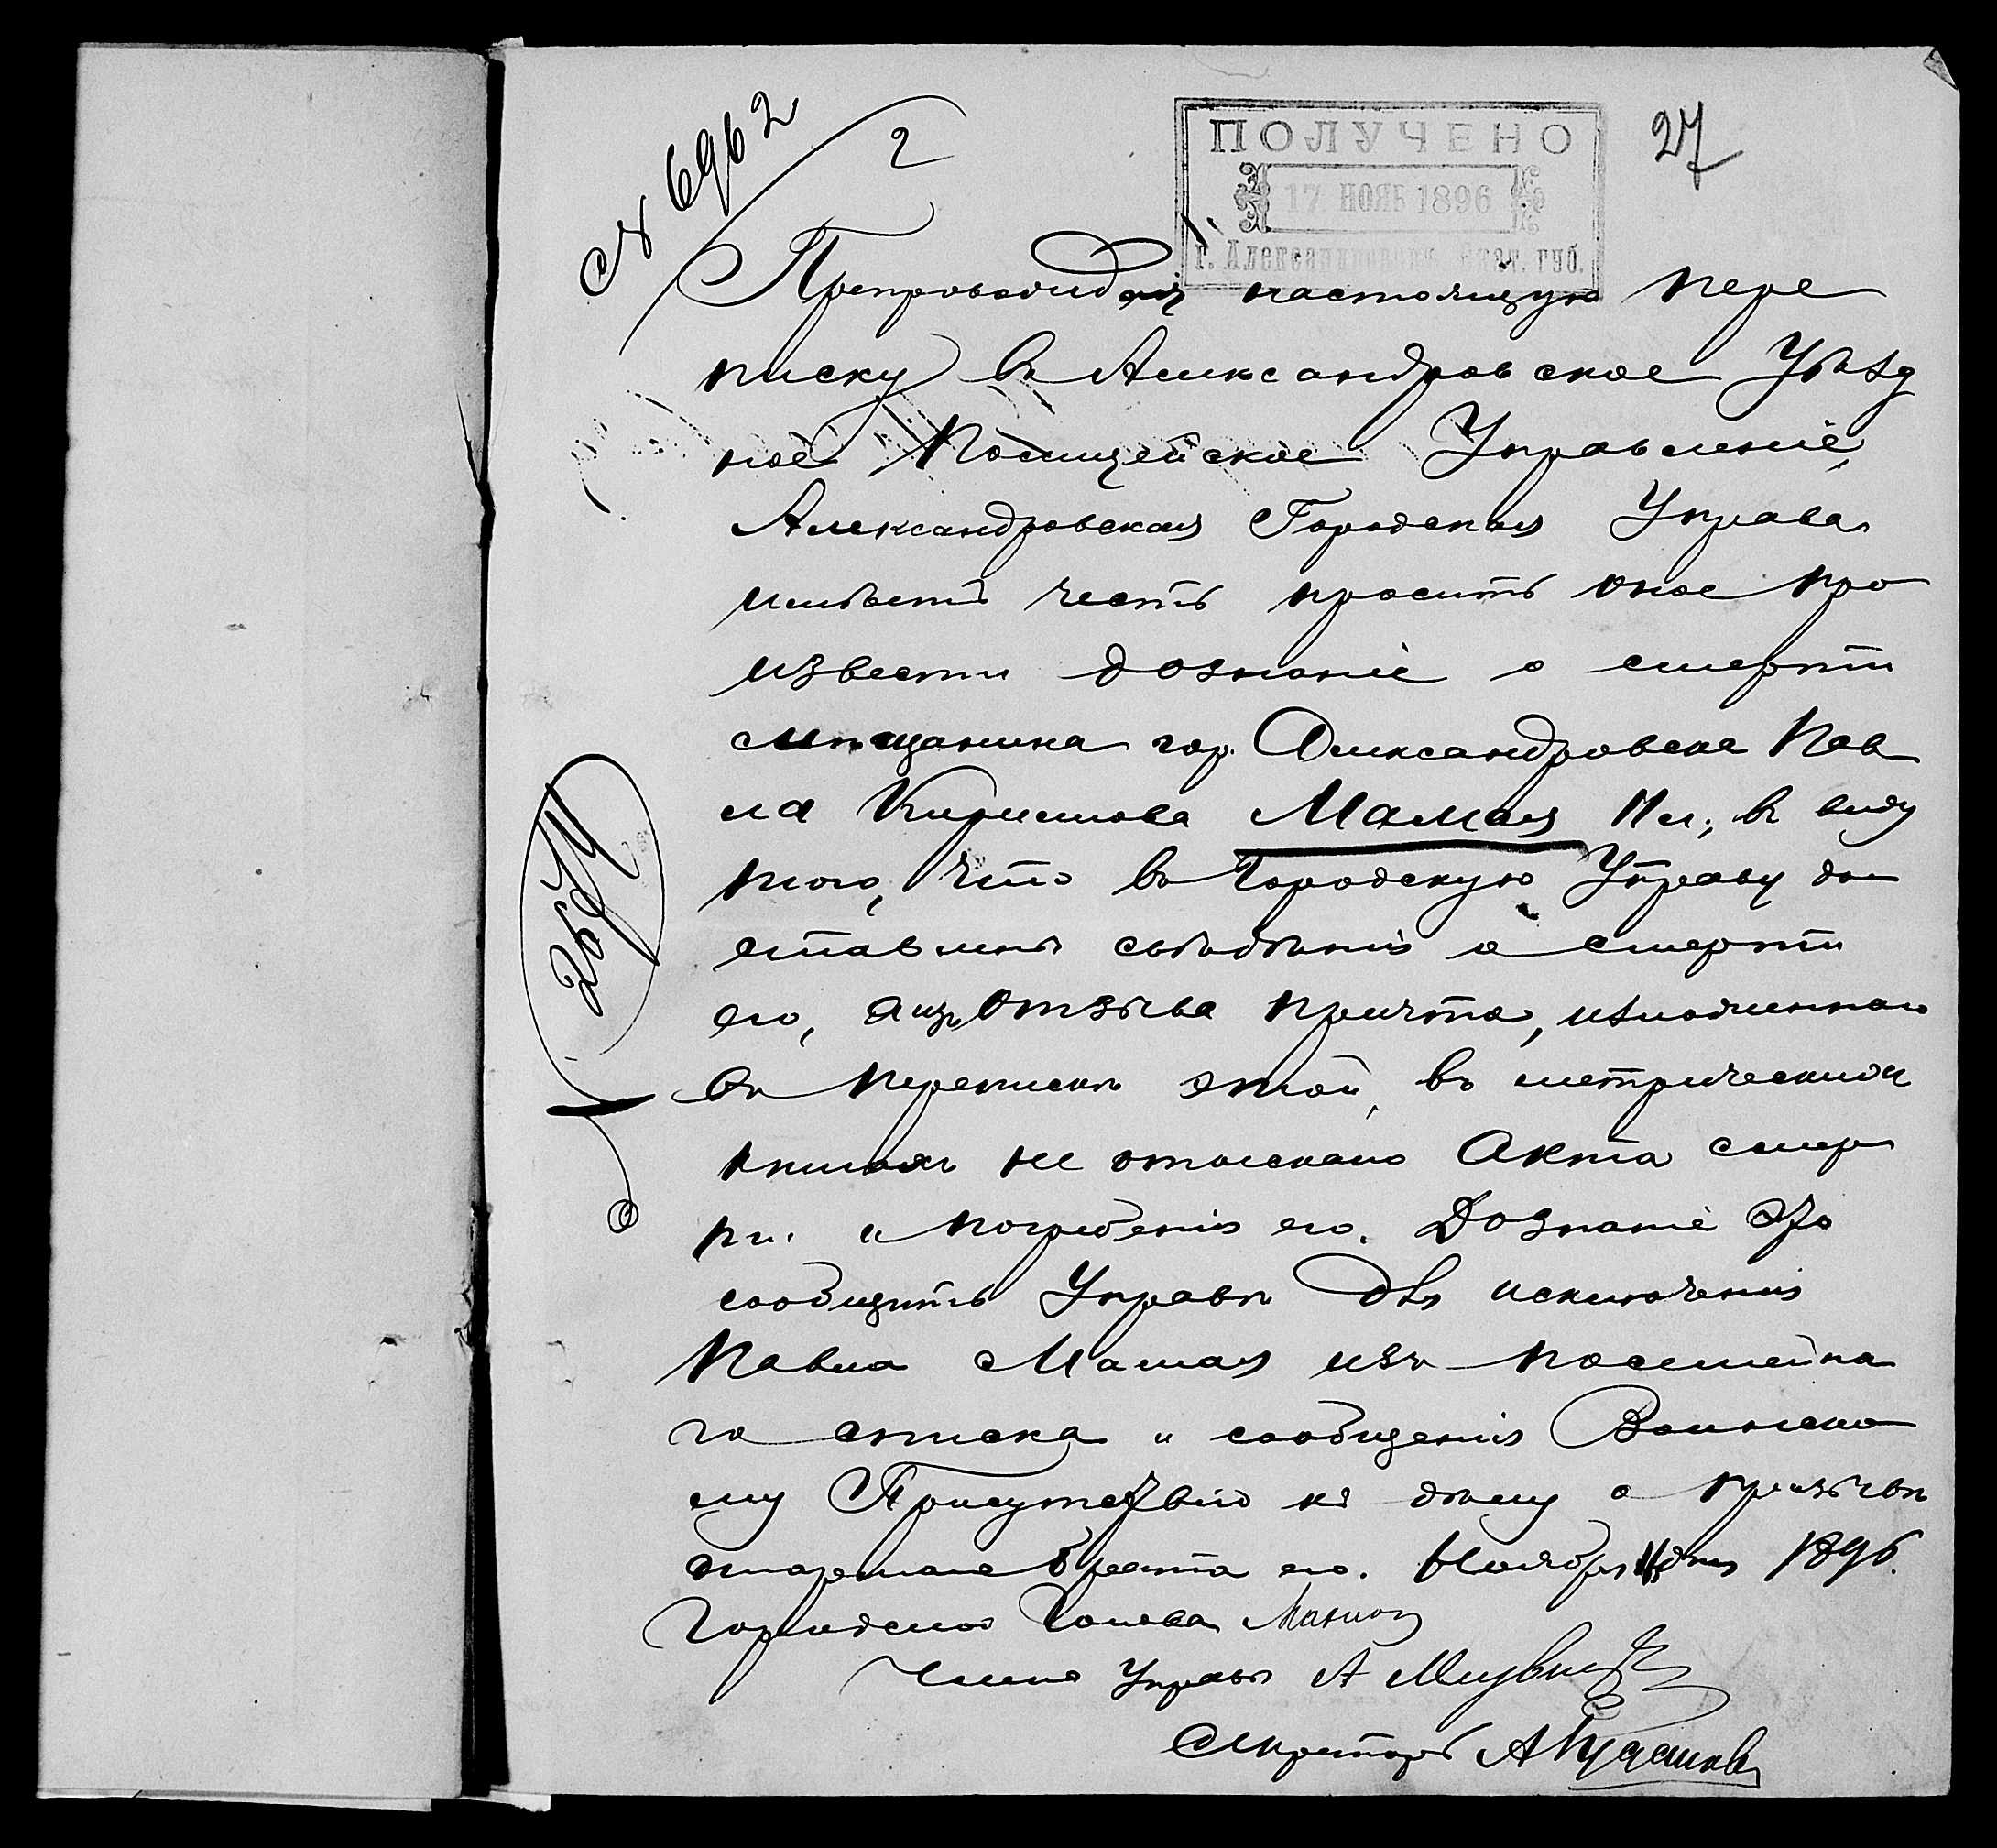 № 6962
2
27
ПОЛУЧЕНО
17 НОЯБ 1896
г. Александровскъ Екат. губ.
Препровождая настоящую пере
писку въ Александровское Уѣзд
ное Полицейское Управленіе,
Александровская Городская Управа
имѣетъ честь просить оное про
извести дознаніе о смерти
мѣщанина гор. Александровска Пав
ла Кирилова Мамая
въ виду
того, что въ Городскую Управу до
ставлены свѣдѣнія о смерти
его, а изъ отзыва причта, изложеннаго
въ перепискѣ этой, въ метрическихъ
книгахъ не отыскано акта смер
ти и погребенія его. Дознаніе это
сообщить Управѣ для исключенія
Павла Мамая изъ посемейна
го списка и сообщенія Воинско
му Присутствію къ дѣлу о призывѣ
брата его. Ноября 11 дня 1896.
Городской Голова
Членъ Управы А
Секретарь А